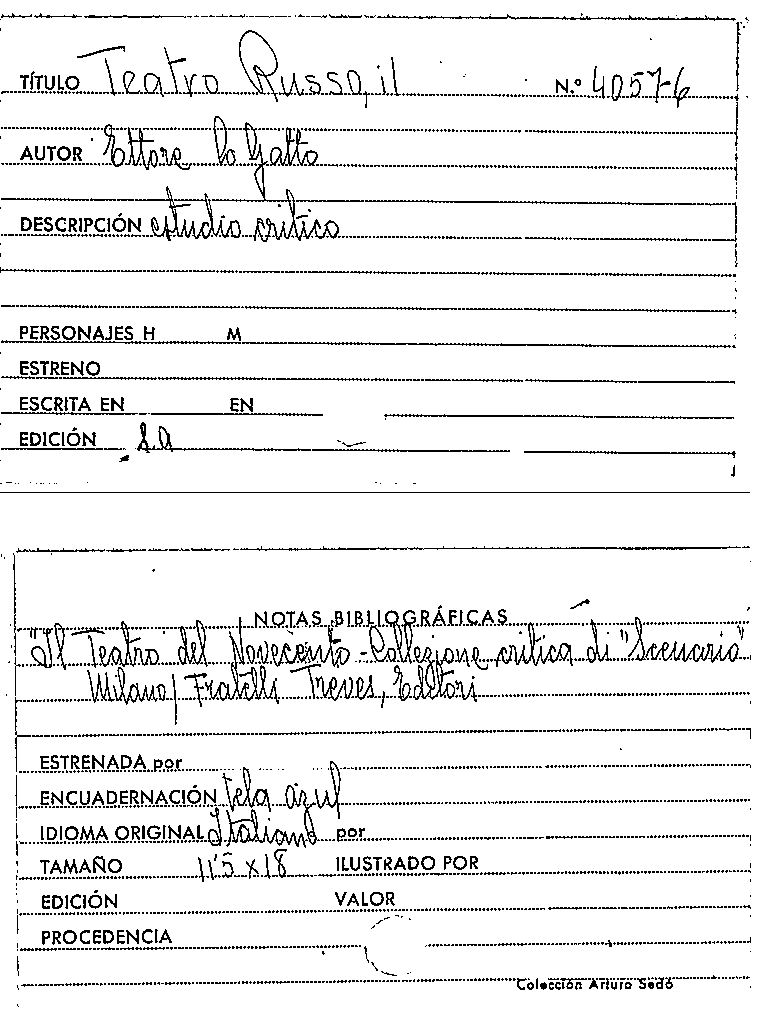 TÍTULO Teatro Russo, il N.º 4057-6
AUTOR Ettore Lo Gatto
DESCRIPCIÓN estudio critico
PERSONAJES H M
ESTRENO
ESCRITA EN EN
EDICIÓN S.A
NOTAS BIBLIOGRÁFICAS
"Il Teatro del Novecento - Collezione critica di "Scenario"
Milano/ Fratelli Treves, Editori
ESTRENADA por
ENCUADERNACIÓN tela azul
IDIOMA ORIGINAL Italiano por
TAMAÑO 11'5 x 18 ILUSTRADO POR
EDICIÓN VALOR
PROCEDENCIA
Colección Arturo Sedó